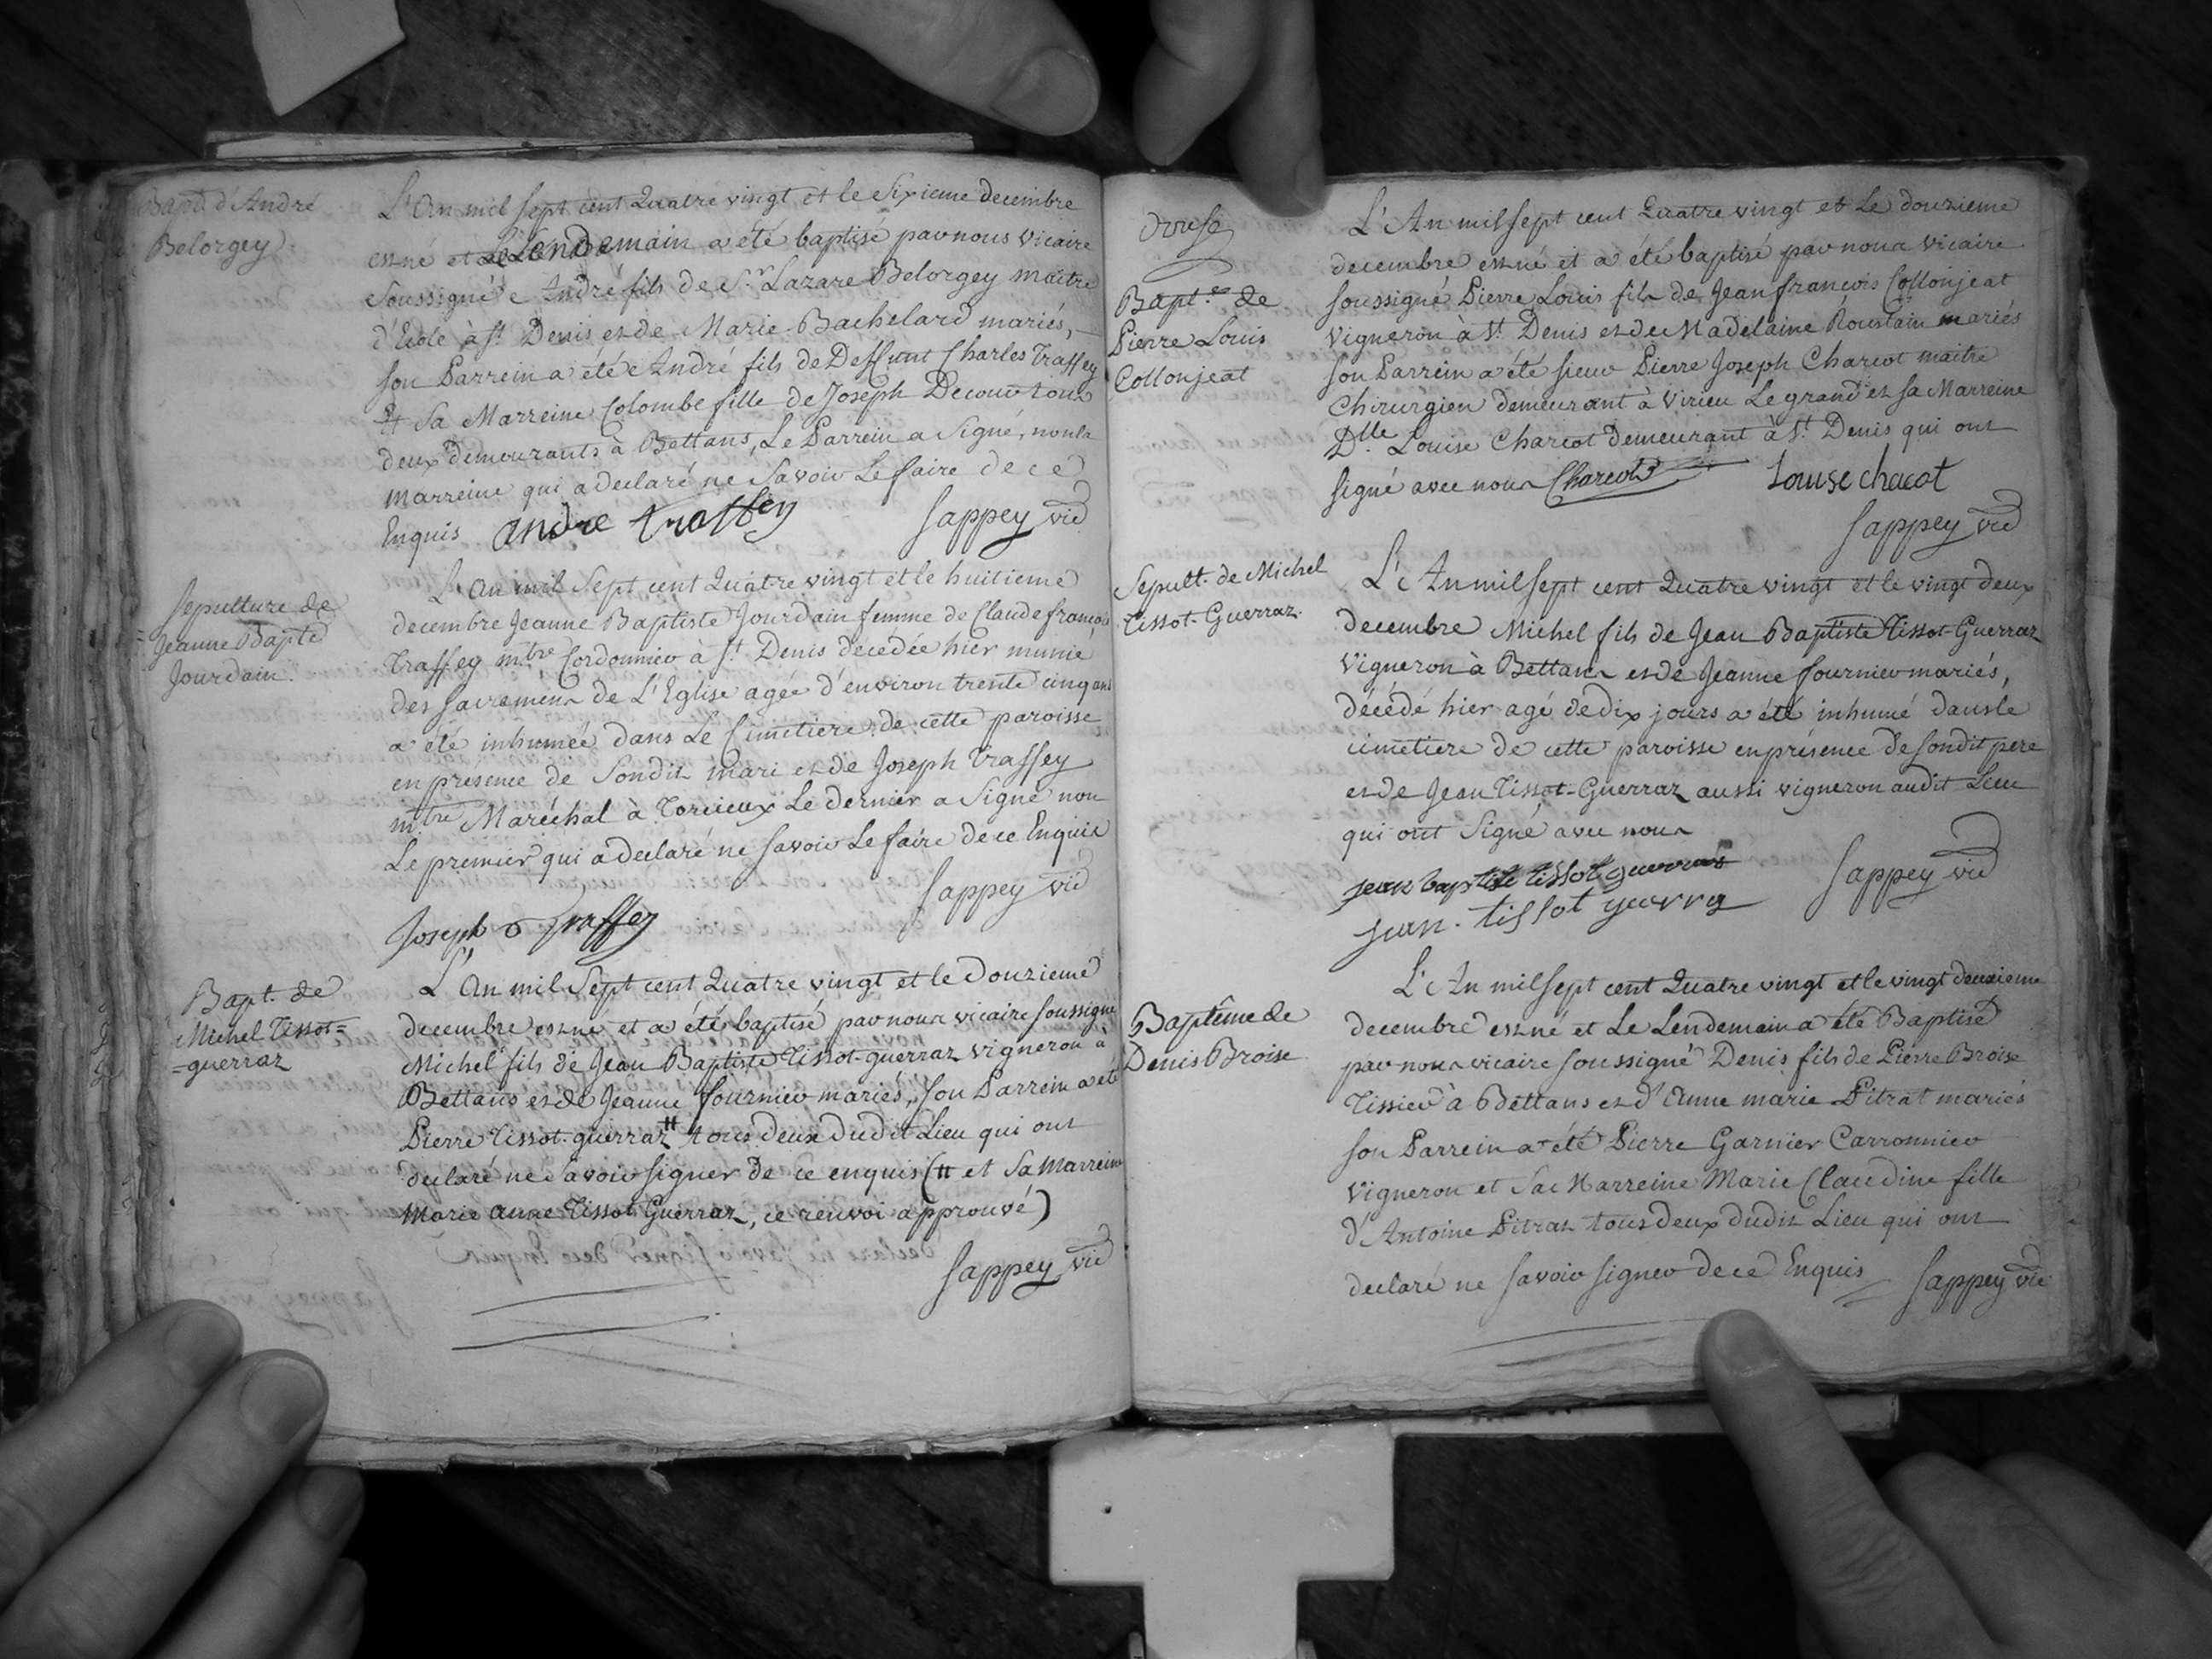 Bapt. d'André
Belorgey
L'An mil sept cent Quatre vingt et le Sixieme decembre
est né et le Lendemain a été baptisé par nous vicaire
Soussigné André fils de Sr Lazare Belorgey maitre
d'Ecole à St Denis et de Marie Bachelard mariés,
son Parrein a été André fils de Deffunt Charles Traffey
Et Sa Marreine Colombe fille de Joseph Decouvroux
deux demeurants à Bettans, Le Parrein a Signé, non la
marreine qui a declaré ne Savoir Le faire de ce
Enquis andre traffey Sappey vic
Sepulture de
Jeanne Bapte
Jourdain.
L'An mil Sept cent Quatre vingt et le huitieme
decembre Jeanne Baptiste Jourdain femme de Claude françois
Traffey mtre Cordonnier à St Denis décedée hier munie
des Sacremens de L'Eglise agée d'environ trente cinq ans
a été inhumée dans Le Cimetiere de cette paroisse
en presence de Sondit mari et de Joseph Traffey
mtre Maréchal à Torcieux Le dernier a Signé non
Le premier qui a declaré ne Savoir Le faire de ce Enquis
Sappey vic
Joseph Traffey
Bapt. de
Michel Tissot=
=guerraz
L'An mil Sept cent Quatre vingt et le Douzieme
decembre est né et a été baptisé par nous vicaire soussigné
Michel fils de Jean Baptiste Tissot-guerraz vigneron à
Bettans et de Jeanne fournier mariés, Son Parrein a été
Pierre Tissot-guerraz # tous deux dudit Lieu qui ont
declaré ne Savoir signer de ce enquis (# et Sa Marreine
Marie anne Tissot Guerraz, ce renvoi approuvé)
Sappey vic
Bapt.e de
Pierre Louis
Collonjeat
L'An mil sept cent Quatre vingt et Le douzieme
decembre est né et a été baptisé par nous vicaire
soussigné Pierre Louis fils de Jean francois Collonjeat
vigneron à St Denis et de Madelaine Roustain mariés
son Parrein a été sieur Pierre Joseph Charcot maitre
Chirurgien demeurant à Virieu Le grand et sa Marreine
Dlle Louise Charcot Demeurant à St Denis qui ont
signé avec nous Charcot Louise chacot
Sappey vic
Sepult. de Michel
Tissot-Guerraz.
L'An mil sept cent Quatre vingt et le vingt deux
decembre Michel fils de Jean Baptiste Tissot-Guerraz
Vigneron à Bettans et de Jeanne fournier mariés,
décédé hier agé de dix jours a été inhumé dans le
cimetiere de cette paroisse en présence de sondit pere
et de Jean Tissot-Guerraz aussi vigneron audit Lieu
qui ont Signé avec nous
jean baptiste tissot guerras Sappey vic
jean. tissot guerra
Baptême de
Denis Broise
L'An mil sept cent Quatre vingt et le vingt deuxieme
decembre est né et Le Lendemain a été Baptisé
par nous vicaire soussigné Denis fils de Pierre Broise
Tissier à Bettans et d'Anne marie Pitrat mariés
son Parrein a été Pierre Garnier Carronnier
vigneron et Sa Marreine Marie Claudine fille
d'Antoine Pitrat tous deux dudit Lieu qui ont
declaré ne savoir signer de ce Enquis Sappey vic